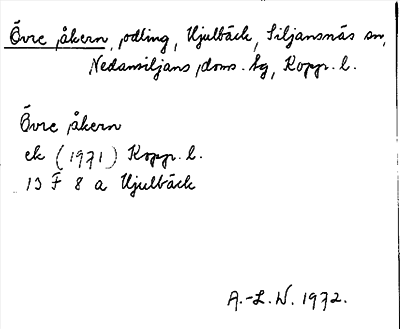 Övre åkern, odling, Hjulbäck, Siljansnäs sn,
Nedansiljans doms. tg, Kopp. l.
Övre åkern
ek (1971) Kopp. l.
13 F 8 a Hjulbäck
A.-L. W. 1972.